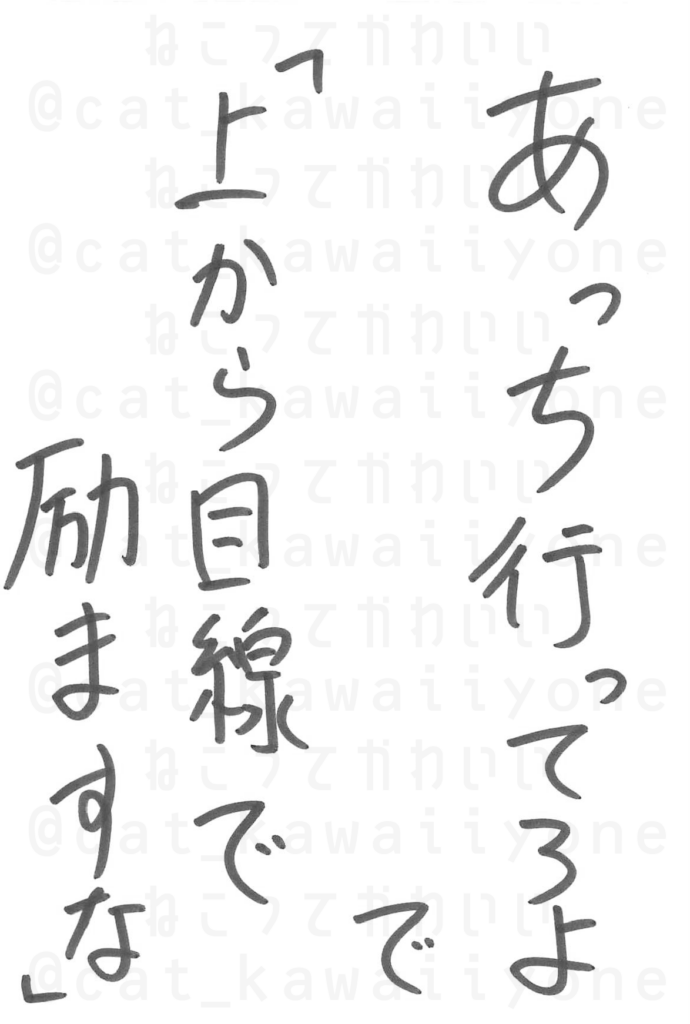 あっち行ってろよ
で
「上から目線で
励ますな」
ねこってかわいい
@cat_kawaiiyone
ねこってかわいい
@cat_kawaiiyone
ねこってかわいい
@cat_kawaiiyone
ねこってかわいい
@cat_kawaiiyone
ねこってかわいい
@cat_kawaiiyone
ねこってかわいい
@cat_kawaiiyone
ねこってかわいい
@cat_kawaiiyone